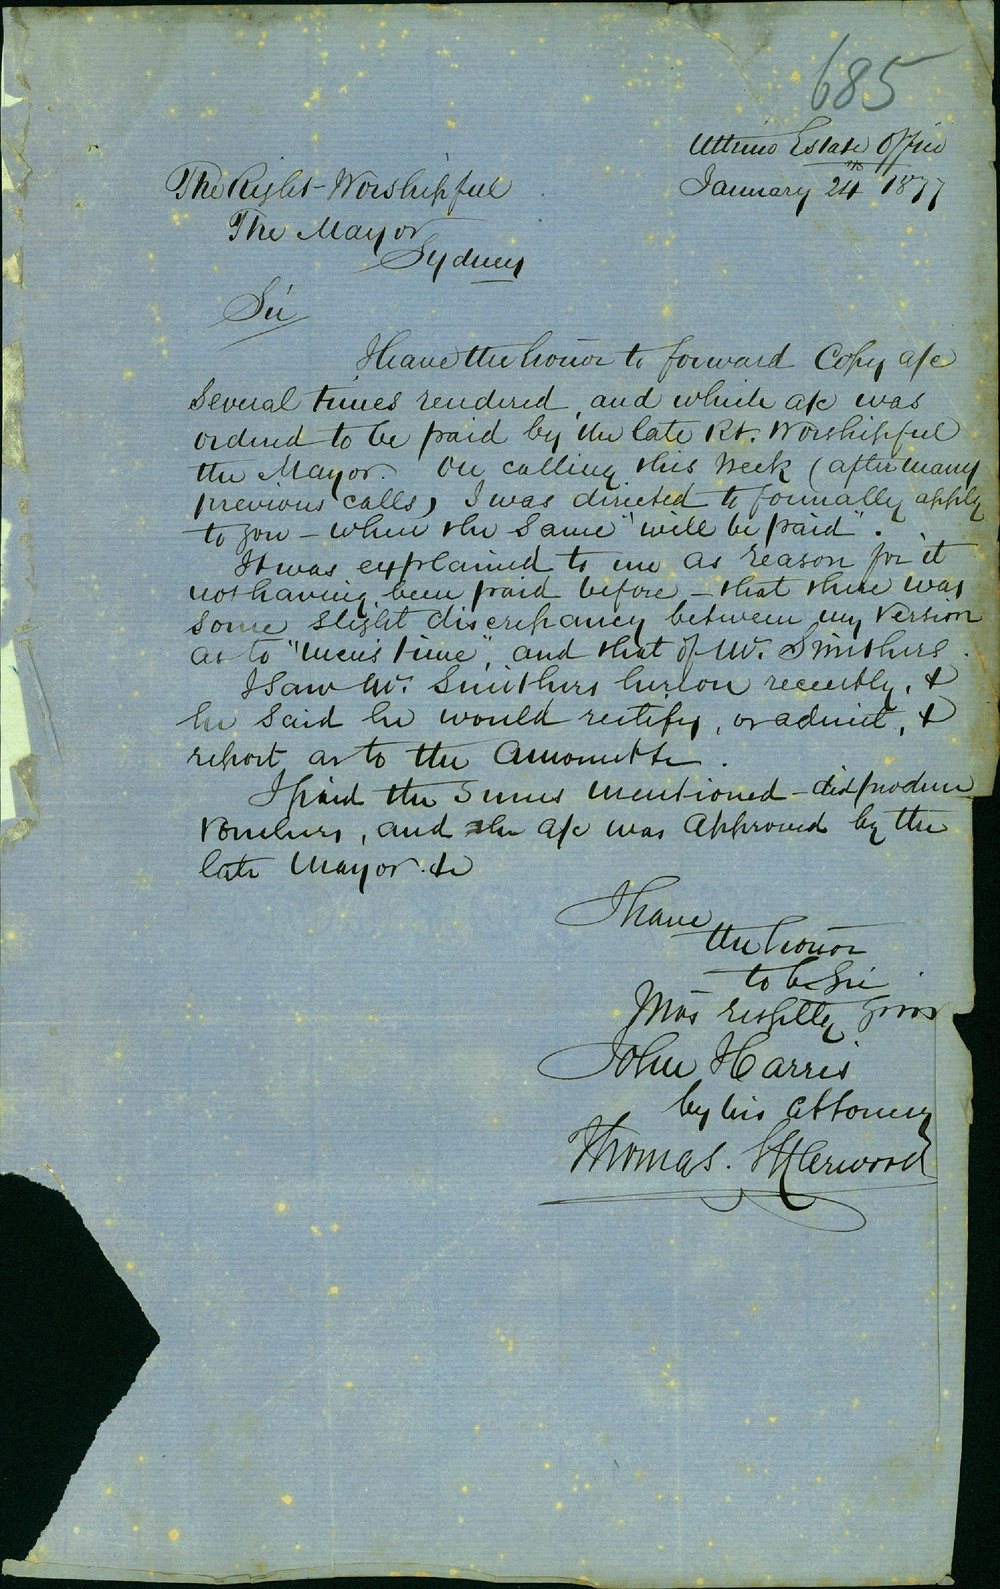 685
Ultimo Estate Office
January 24th 1877
The Right Worshipful
The Mayor
Sydney
Sir
I have the honor to forward Copy a/c
several times rendered, and which a/c was
ordered to be paid by the late Rt. Worshipful
the Mayor. On calling this week (after many
previous calls) I was directed to formally apply
to you – when the same "will be paid".
It was explained to me as reason for it
not having been paid before – that there was
some slight discrepancy between my version
as to "men's time", and that of Mr. Smithers.
I saw Mr. Smithers hereon recently, &
he said he would rectify, or admit, &
report as to the amount &c.
I paid the sums mentioned – did produce
vouchers, and the a/c was approved by the
late Mayor &c
I have
the honor
to be Sir
Yours
John Harris
by his Attorney
Thomas